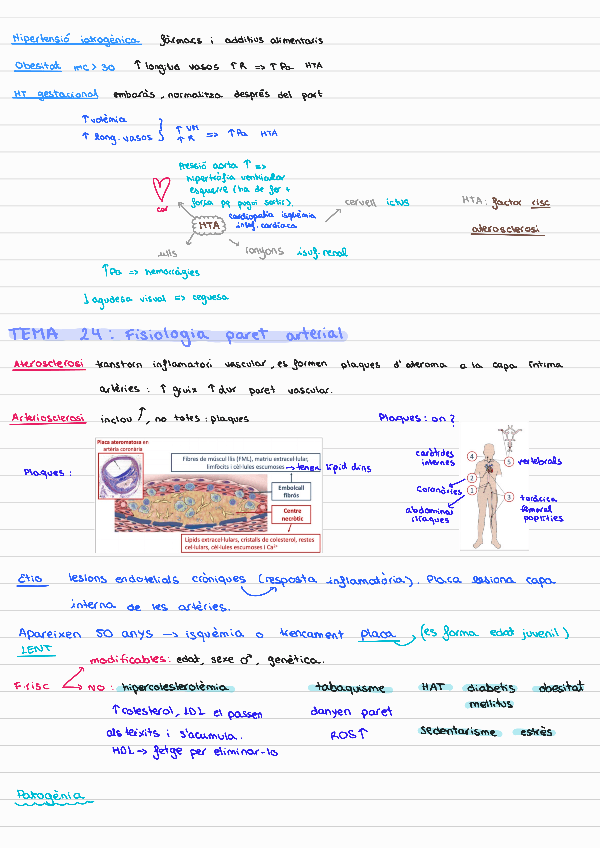 Hipertensió iatrogènica fàrmacs i additius alimentaris
Obesitat MC > 30 ↑ longitud vasos ↑ R => ↑ Pa HTA
HT gestacional embaràs, normalitza després del part
↑ volèmia
↑ long. vasos } ↑ VM ↑ R => ↑ Pa HTA
Pressió aorta ↑ =>
hipertròfia ventricular
esquerre (ha de fer +
força pq pugui sortir).
cor
cardiopatia isquèmia
insuf. cardíaca
HTA
cervell ictus
HTA: factor risc
aterosclerosi
ulls
ronyons insuf. renal
↑ Pa => hemorràgies
↓ agudesa visual => ceguesa
TEMA 24: Fisiologia paret arterial
Aterosclerosi transtorn inflamatori vascular, es formen plaques d'ateroma a la capa íntima
artèries: ↑ gruix ↑ dur paret vascular.
Arteriosclerosi inclou ↑, no totes: plaques
Plaques: on?
Plaques:
Placa ateromatosa en
artèria coronària
Fibres de múscul llis (FML), matriu extracel·lular,
limfòcits i cèl·lules escumoses → tenen lípid dins
Embolcall
fibrós
Centre
necròtic
Lípids extracel·lulars, cristalls de colesterol, restes
cel·lulars, cèl·lules escumoses i Ca²⁺
caròtides
internes 4
5 vertebrals
2
coronàries 1
3 toràcica
femoral
poplíties
abdominal
ilíaques
Etio lesions endotelials cròniques (resposta inflamatòria). Placa lesiona capa
interna de les artèries.
Apareixen 50 anys → isquèmia o trencament placa (es forma edat juvenil)
LENT
modificables: edat, sexe ♂, genètica.
F. risc
NO: hipercolesterolèmia tabaquisme HAT diabetis obesitat
mellitus
↑ colesterol, LDL el passen danyen paret
als teixits i s'acumula. ROS ↑ sedentarisme estrès
HDL → fetge per eliminar-lo
Patogènia